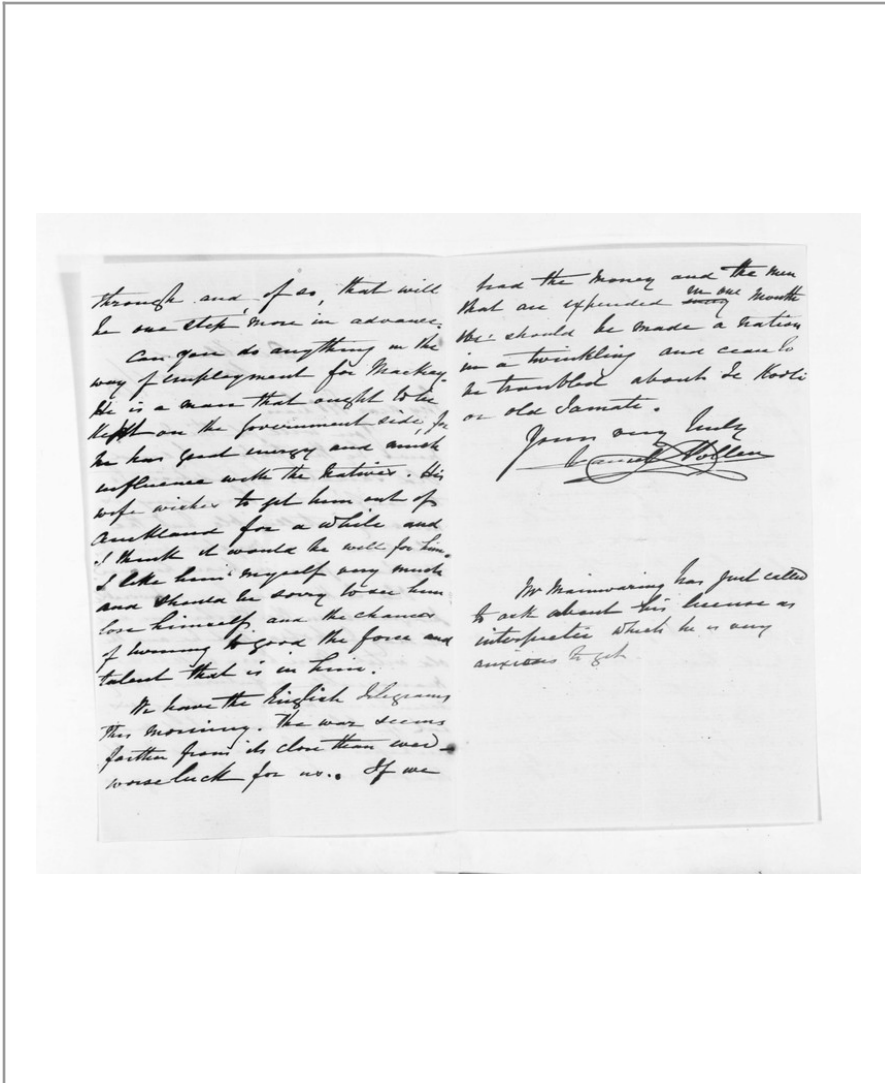 through and, if so, that will
be one step more in advance.
Can you do anything in the
way of employment for Mackay.
He is a man that ought to be
kept on the government side for
he has great energy and much
influence with the Natives. His
wife wishes to get him out of
Auckland for a while and
I think it would be well for him.
I like him myself very much
and should be sorry to see him
lose himself, and the chances
of turning to good the force and
talent that is in him.
We have the English Telegrams
this morning. The war seems
farther from its close than ever –
worse luck for us. If we
had the money and the men
that are expended in one month
we should be made a nation
in a twinkling and cease to
be troubled about Te Kooti
or old Tamati.
Yours very truly
Daniel Pollen
Mr Mainwaring has just called
to ask about his license as
interpreter which he is very
anxious to get.